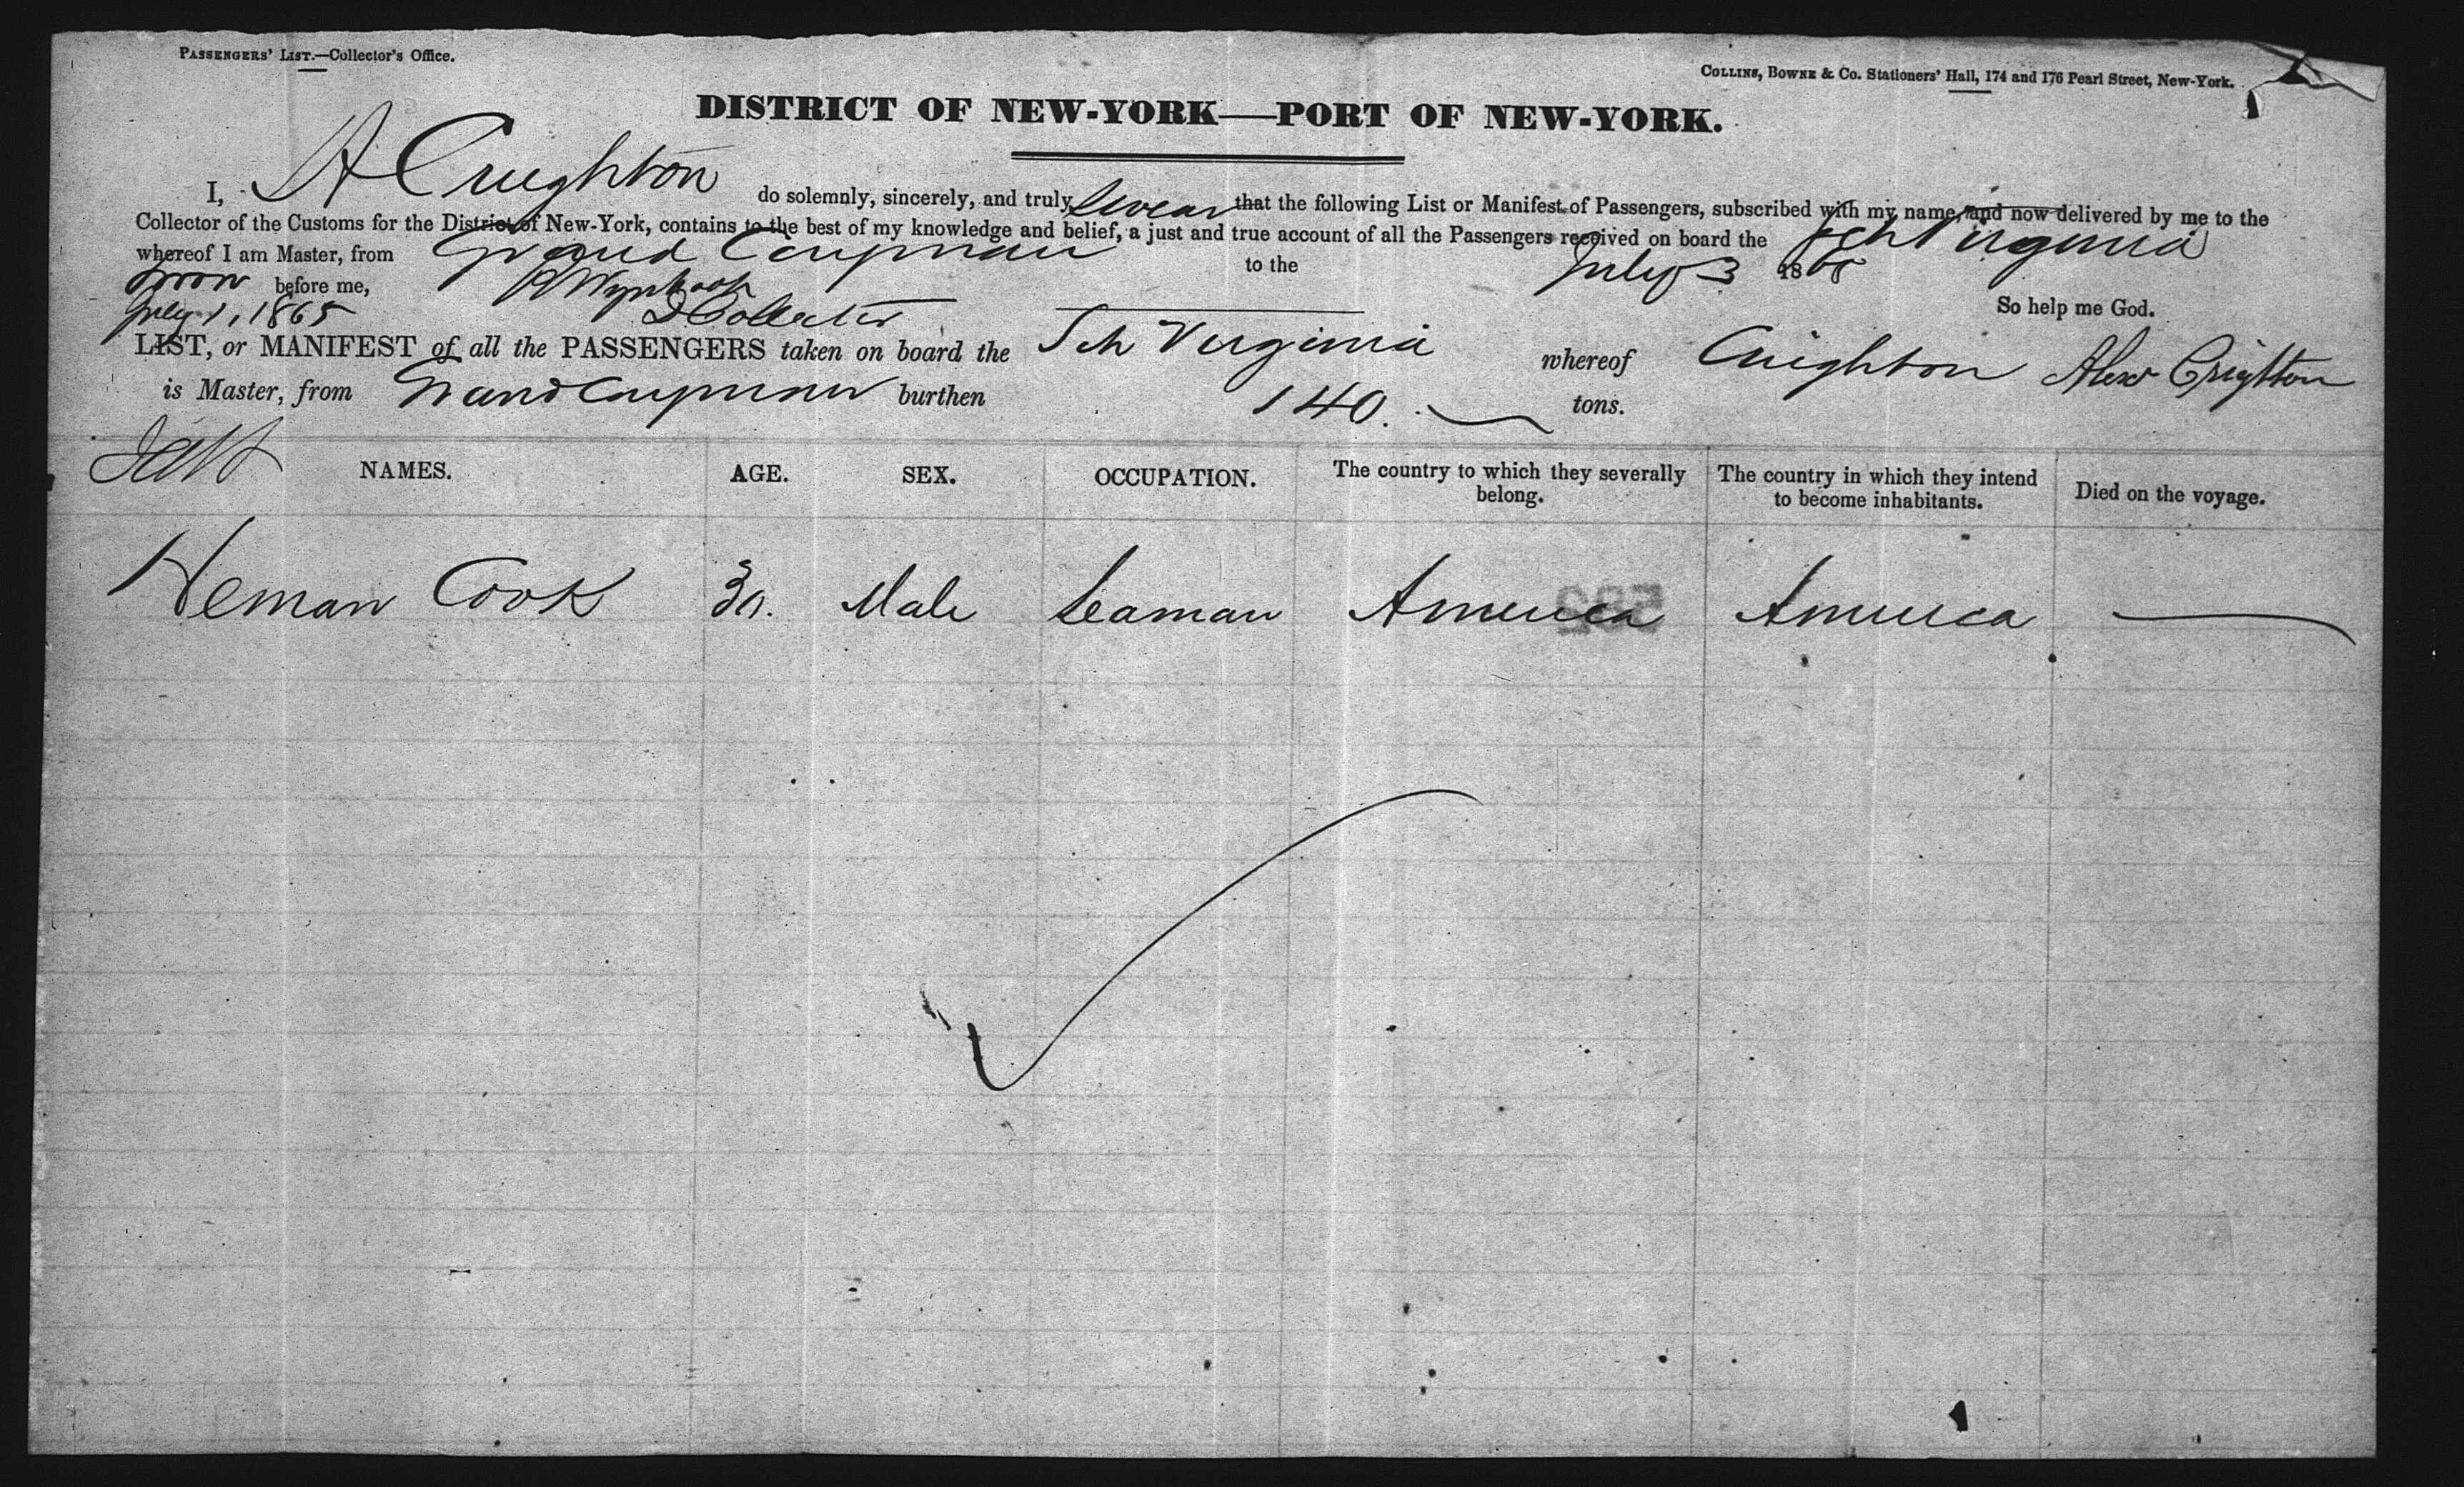 PASSENGERS' LIST.—Collector's Office.
COLLINS, BOWNE & Co. Stationers' Hall, 174 and 176 Pearl Street, New-York.
DISTRICT OF NEW-YORK—PORT OF NEW-YORK.
I, A Creighton do solemnly, sincerely, and truly swear that the following List or Manifest of Passengers, subscribed with my name, and now delivered by me to the
Collector of the Customs for the District of New-York, contains to the best of my knowledge and belief, a just and true account of all the Passengers received on board the Sch Virginia
whereof I am Master, from Grand Cayman to the July 3 1865
Sworn before me,
So help me God.
July 1, 1865 D Collector
LIST, or MANIFEST of all the PASSENGERS taken on board the Sch Virginia whereof Crighton Alexr Crighton
is Master, from Grand Cayman burthen 140. tons.
NAMES. AGE. SEX. OCCUPATION. The country to which they severally belong. The country in which they intend to become inhabitants. Died on the voyage.
Heman Cook 30. Male Seaman America America —
582